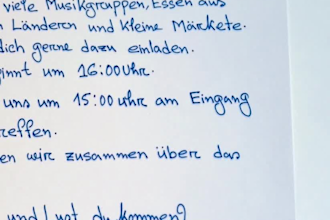 viele Musikgruppen, Essen aus
Ländern und kleine Märkete.
dich gerne dazu einladen.
um 16:00 Uhr.
uns um 15:00 Uhr am Eingang
wir zusammen über das
und Lust du kommen?